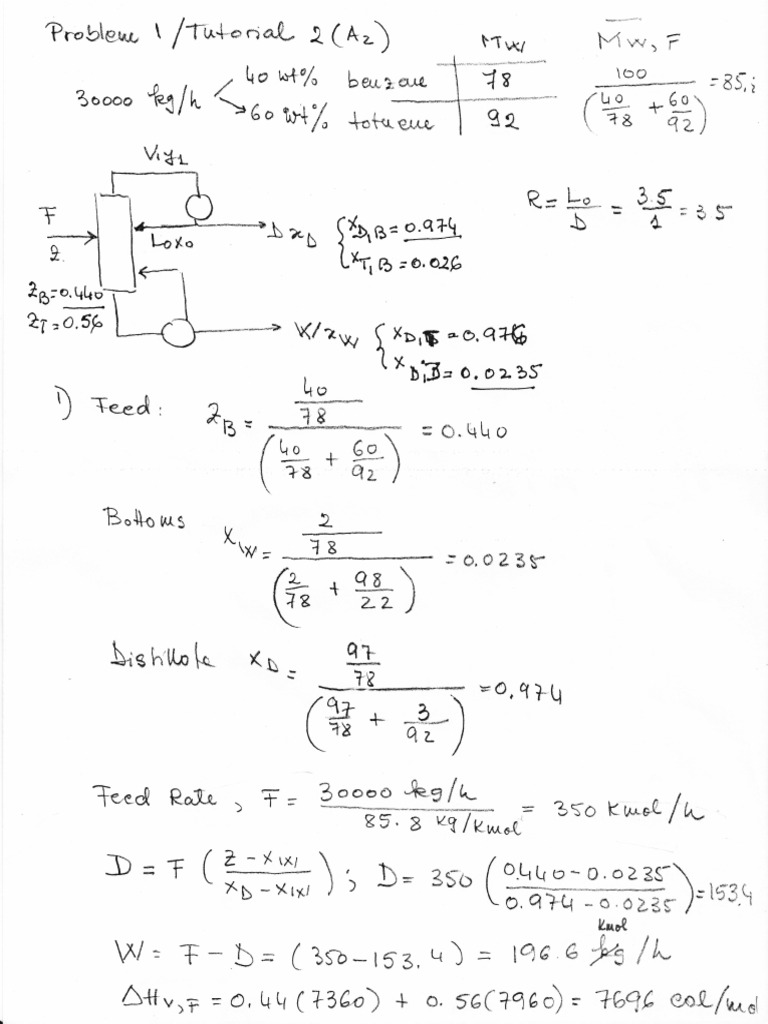 Problem 1/Tutorial 2 (A2)
MW
M̅w, F
30000 kg/h
40 wt% benzene 78
60 wt% toluene 92
100 / (40/78 + 60/92) = 85,
V1y1
F
z
L0x0
D xD
xD,B = 0.974
xT,B = 0.026
R = L0/D = 3.5/1 = 3 5
zB = 0.440
zT = 0.56
W/xW
xD,T = 0.976
xD,B = 0.0235
1) Feed: zB = (40/78) / (40/78 + 60/92) = 0.440
Bottoms xW = (2/78) / (2/78 + 98/22) = 0.0235
Distillate xD = (97/78) / (97/78 + 3/92) = 0,974
Feed Rate, F = 30000 kg/h / 85.8 kg/kmol = 350 kmol/h
D = F (z - xW / xD - xW); D = 350 (0.440 - 0.0235 / 0.974 - 0.0235) = 153.4
W = F - D = (350 - 153.4) = 196.6 kmol/h
ΔHv,F = 0.44(7360) + 0.56(7960) = 7696 cal/mol